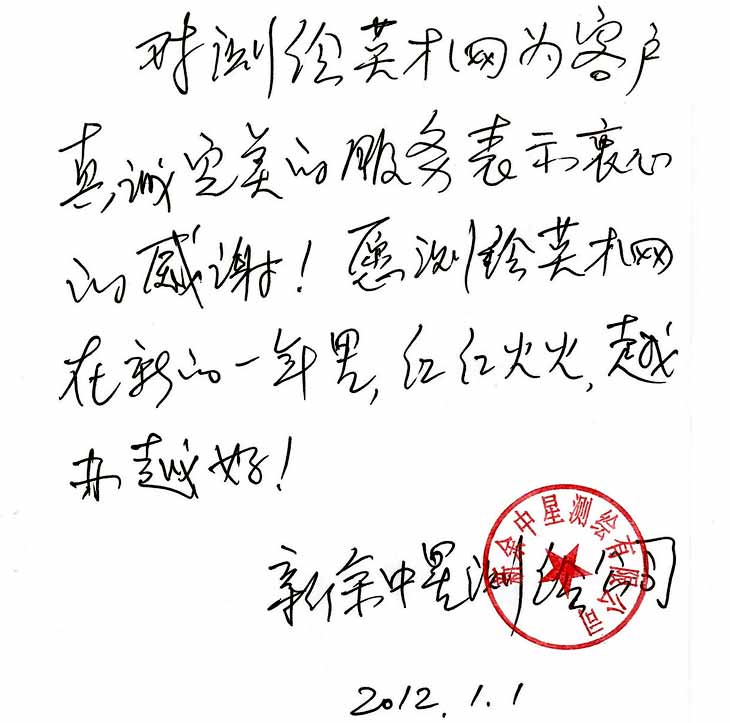 对测绘英才网为客户
真诚完美的服务表示衷心
的感谢！愿测绘英才网
在新的一年里，红红火火，越
办越好！
新余中星测绘有限公司
新余中星测绘公司
2012.1.1